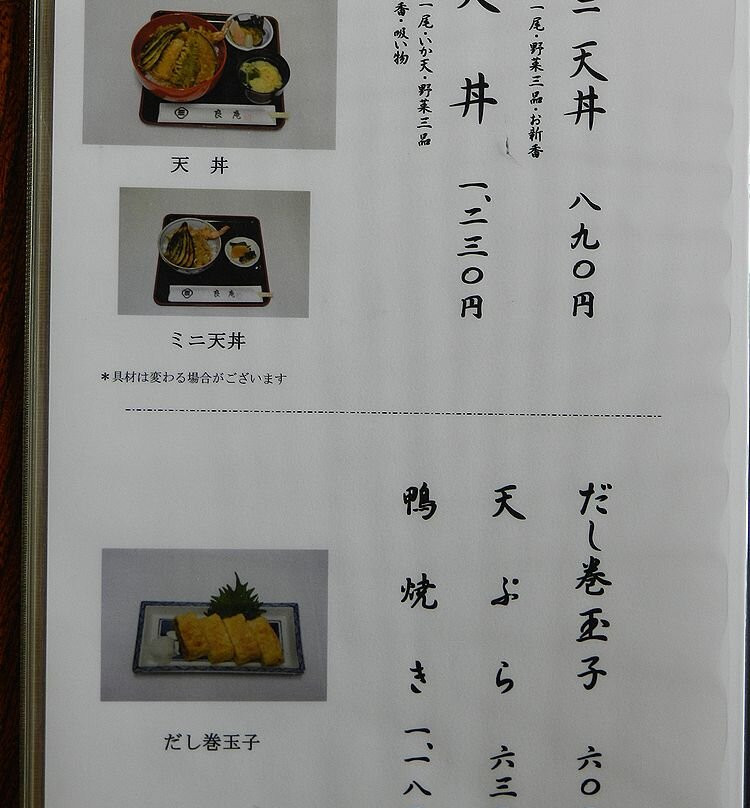 ニ天丼 八九〇円
一尾・野菜三品・お新香
天丼 一、二三〇円
一尾・いか天・野菜三品
香・吸い物
天 丼
ミニ天丼
＊具材は変わる場合がございます
だし巻玉子 六〇
天ぷら 六三
鴨焼き 一、一八
だし巻玉子